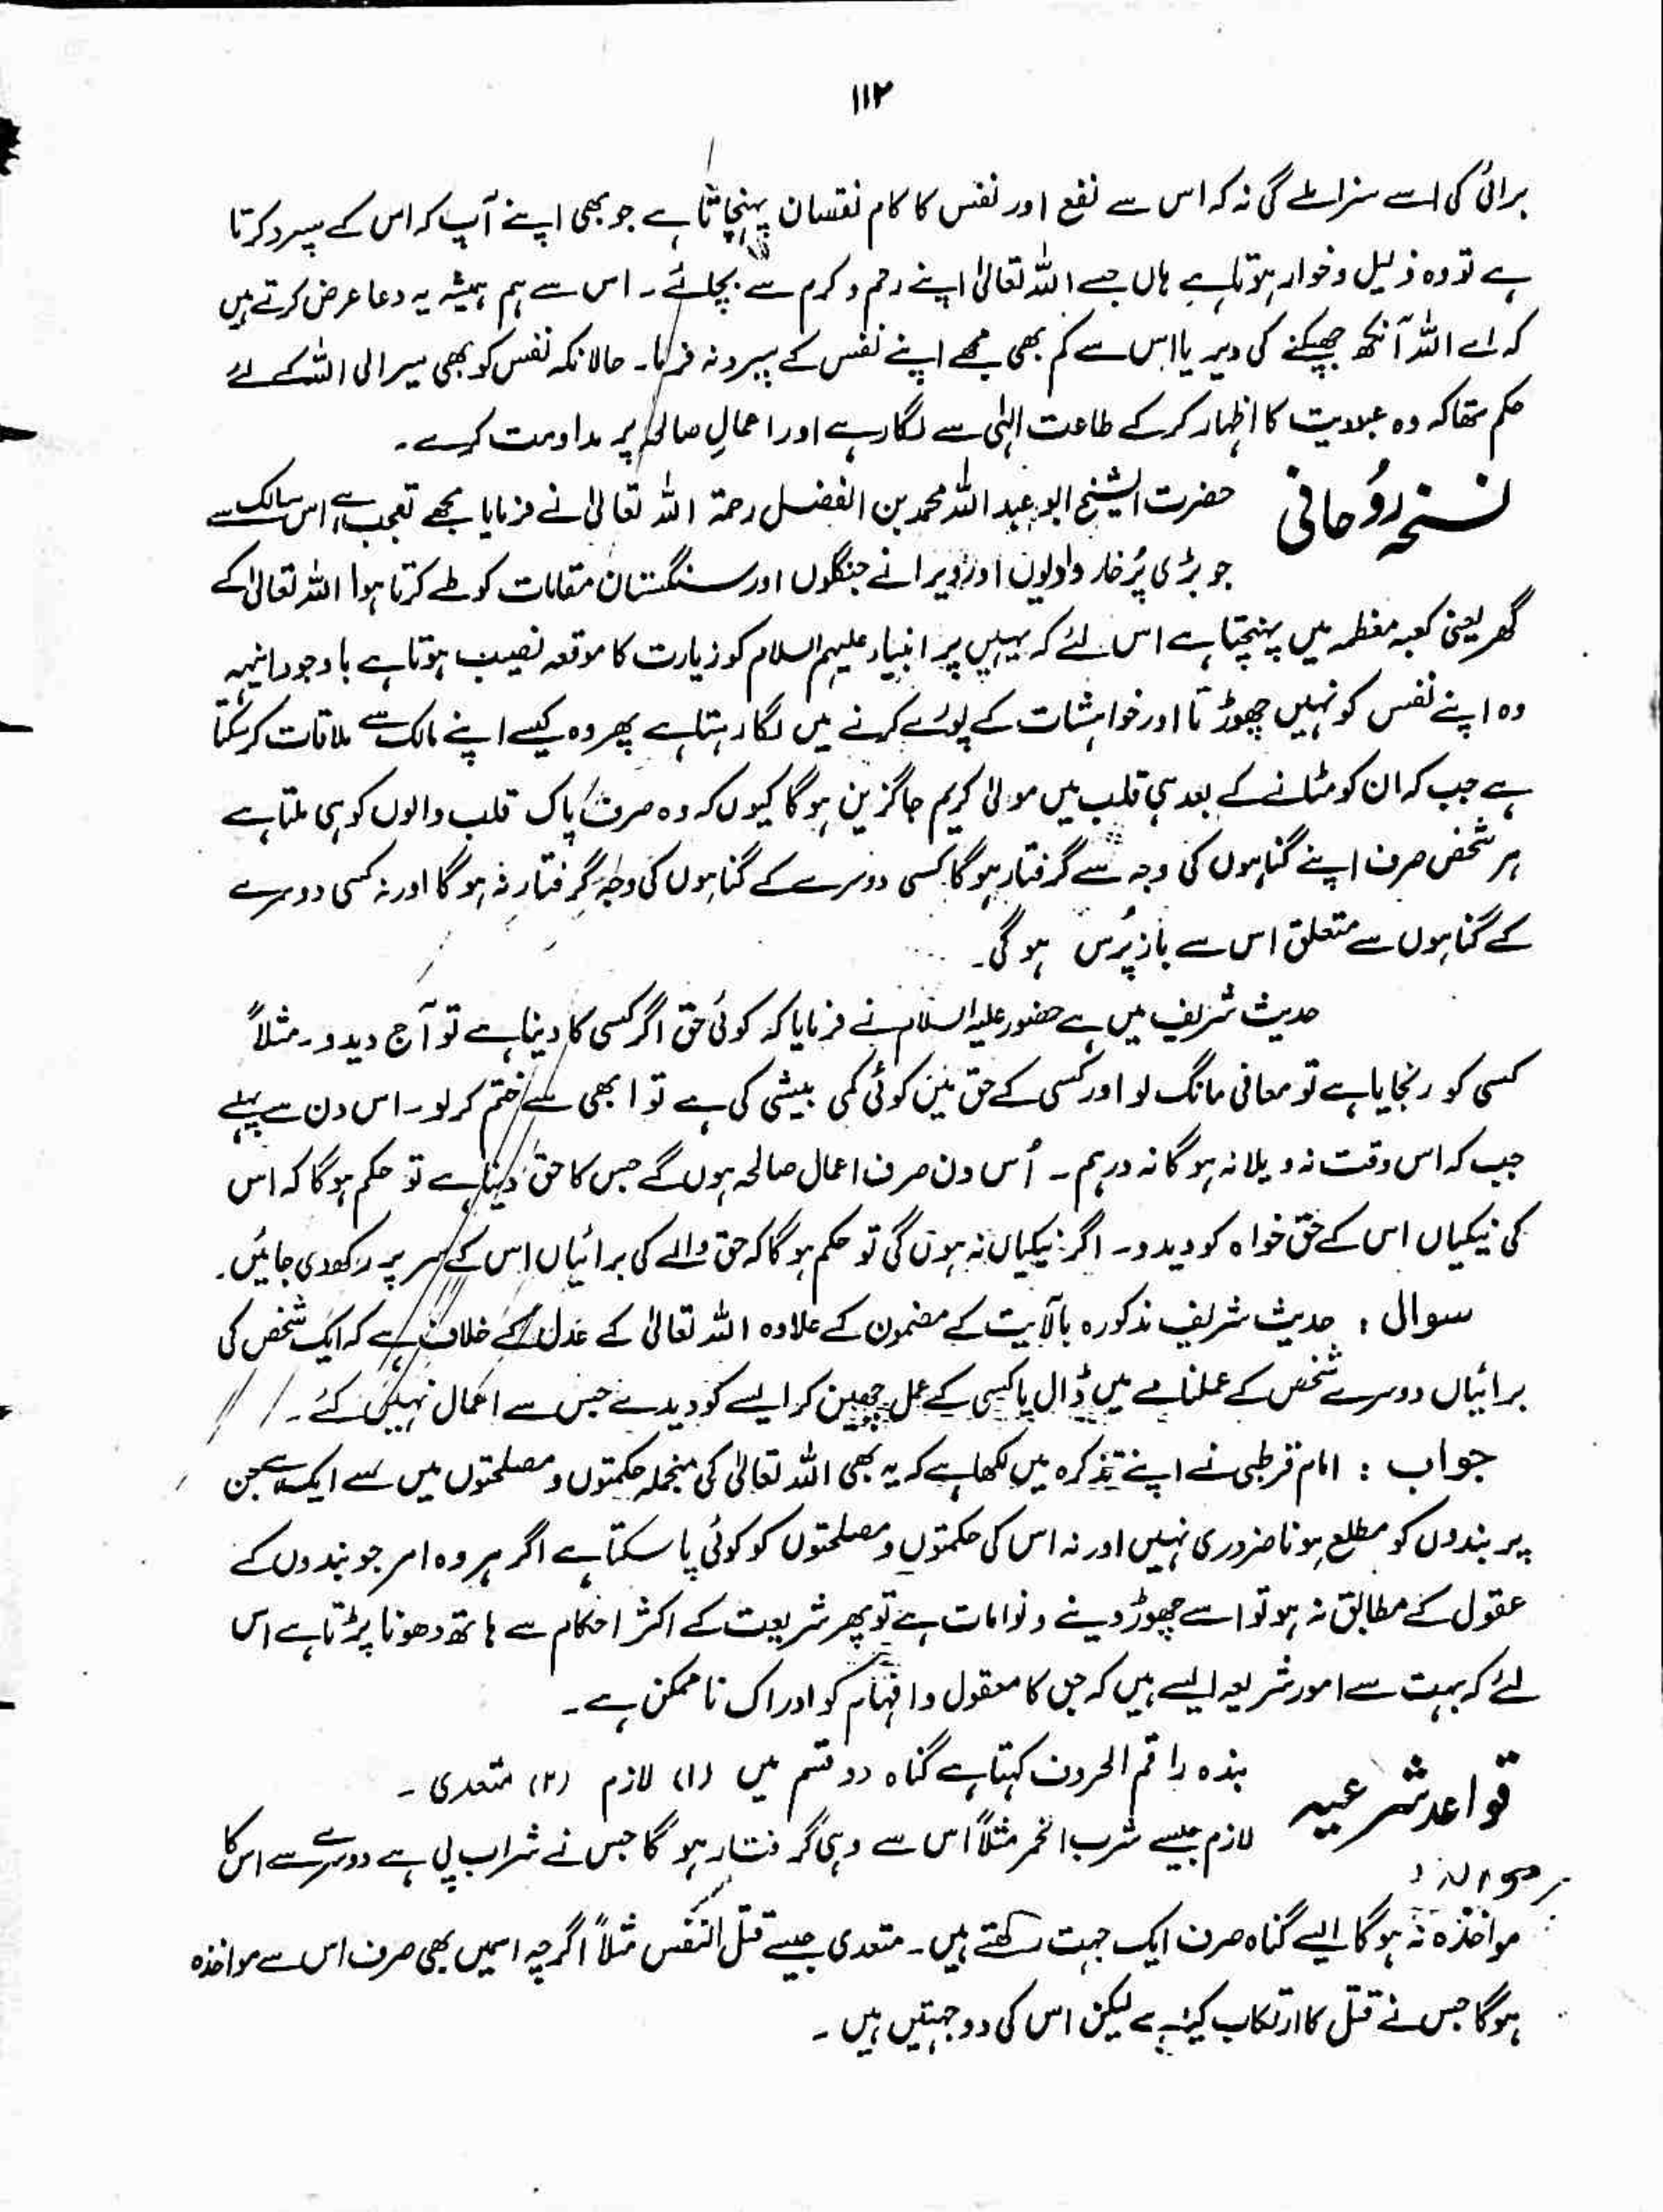 ۱۱۲
برائی کی اسے سزا ملے گی نہ کہ اس سے نفع اور نفس کا کام نقصان پہنچاتا ہے جو بھی اپنے آپ کہ اس کے سپرد کرتا
ہے تو وہ ذلیل و خوار ہوتا ہے ہاں جسے اللہ تعالیٰ اپنے رحم و کرم سے بچائے۔ اس سے ہم ہمیشہ یہ دعا عرض کرتے ہیں
کہ اے اللہ آنکھ جھپکنے کی دیر یا اس سے کم بھی مجھے اپنے نفس کے سپرد نہ فرما۔ حالانکہ نفس کو بھی سیر الی اللہ کے لئے
حکم تھا کہ وہ عبودیت کا اظہار کر کے طاعت الٰہی سے لگا رہے اور اعمالِ صالحہ پر مداومت کرے۔
نسخہ رُوحانی
حضرت الشیخ ابو عبد اللہ محمد بن الفضل رحمۃ اللہ تعالیٰ نے فرمایا مجھے تعجب ہے اس سالک سے
جو بڑی پُر خار وادیوں اور ویرانے جنگلوں اور سنگستان مقامات کو طے کرتا ہوا اللہ تعالیٰ کے
گھر یعنی کعبہ معظمہ میں پہنچتا ہے اس لئے کہ یہیں پر انبیاء علیہم السلام کو زیارت کا موقعہ نصیب ہوتا ہے باوجود اینہمہ
وہ اپنے نفس کو نہیں چھوڑتا اور خواہشات کے پورے کرنے میں لگا رہتا ہے پھر وہ کیسے اپنے مالک سے ملاقات کر سکتا
ہے جب کہ ان کو مٹانے کے بعد ہی قلب میں مولیٰ کریم جاگزین ہو گا کیوں کہ وہ صرف پاک قلب والوں کو ہی ملتا ہے
ہر شخص صرف اپنے گناہوں کی وجہ سے گرفتار ہو گا کسی دوسرے کے گناہوں کی وجہ گرفتار نہ ہو گا اور نہ کسی دوسرے
کے گناہوں سے متعلق اس سے باز پُرس ہو گی۔
حدیث شریف میں ہے حضور علیہ السلام نے فرمایا کہ کوئی حق اگر کسی کا دینا ہے تو آج دیدو۔ مثلاً
کسی کو رنجایا ہے تو معافی مانگ لو اور کسی کے حق میں کوئی کمی بیشی کی ہے تو ابھی سے ختم کر لو۔ اس دن سے پہلے
جب کہ اس وقت نہ ویلا نہ ہو گا نہ درہم۔ اُس دن صرف اعمال صالحہ ہوں گے جس کا حق دینا ہے تو حکم ہو گا کہ اس
کی نیکیاں اس کے حق خواہ کو دیدو۔ اگر نیکیاں نہ ہوں گی تو حکم ہو گا کہ حق والے کی برائیاں اس کے سر پر رکھ دی جائیں۔
سوال : حدیث شریف مذکورہ بالا آیت کے مضمون کے علاوہ اللہ تعالیٰ کے عدل کے خلاف ہے کہ ایک شخص کی
برائیاں دوسرے شخص کے عملنامے میں ڈال یا کسی کے عمل چھین کر ایسے کو دیدے جس سے اعمال نہیں کئے۔
جواب : امام قرطبی نے اپنے تذکرہ میں لکھا ہے کہ یہ بھی اللہ تعالیٰ کی منجملہ حکمتوں و مصلحتوں میں سے ایک ہے جن
پر بندوں کو مطلع ہونا ضروری نہیں اور نہ اس کی حکمتوں و مصلحتوں کو کوئی پا سکتا ہے اگر ہر وہ امر جو بندوں کے
عقول کے مطابق نہ ہو تو اسے چھوڑ دینے و نوامات ہے تو پھر شریعت کے اکثر احکام سے ہاتھ دھونا پڑتا ہے اس
لئے کہ بہت سے امور شریعہ ایسے ہیں کہ جن کا معقول و افہام کو ادراک ناممکن ہے۔
قواعد شرعیہ
بندہ راقم الحروف کہتا ہے گناہ دو قسم میں (۱) لازم (۲) متعدی۔
لازم جیسے شرب الخمر مثلاً اس سے وہی گرفتار ہو گا جس نے شراب پی ہے دوسرے سے اس کا
مواخذہ نہ ہو گا ایسے گناہ صرف ایک جہت رکھتے ہیں۔ متعدی جیسے قتل النفس مثلاً اگرچہ اسمیں بھی صرف اس سے مواخذہ
ہو گا جس نے قتل کا ارتکاب کیا ہے لیکن اس کی دو جہتیں ہیں۔